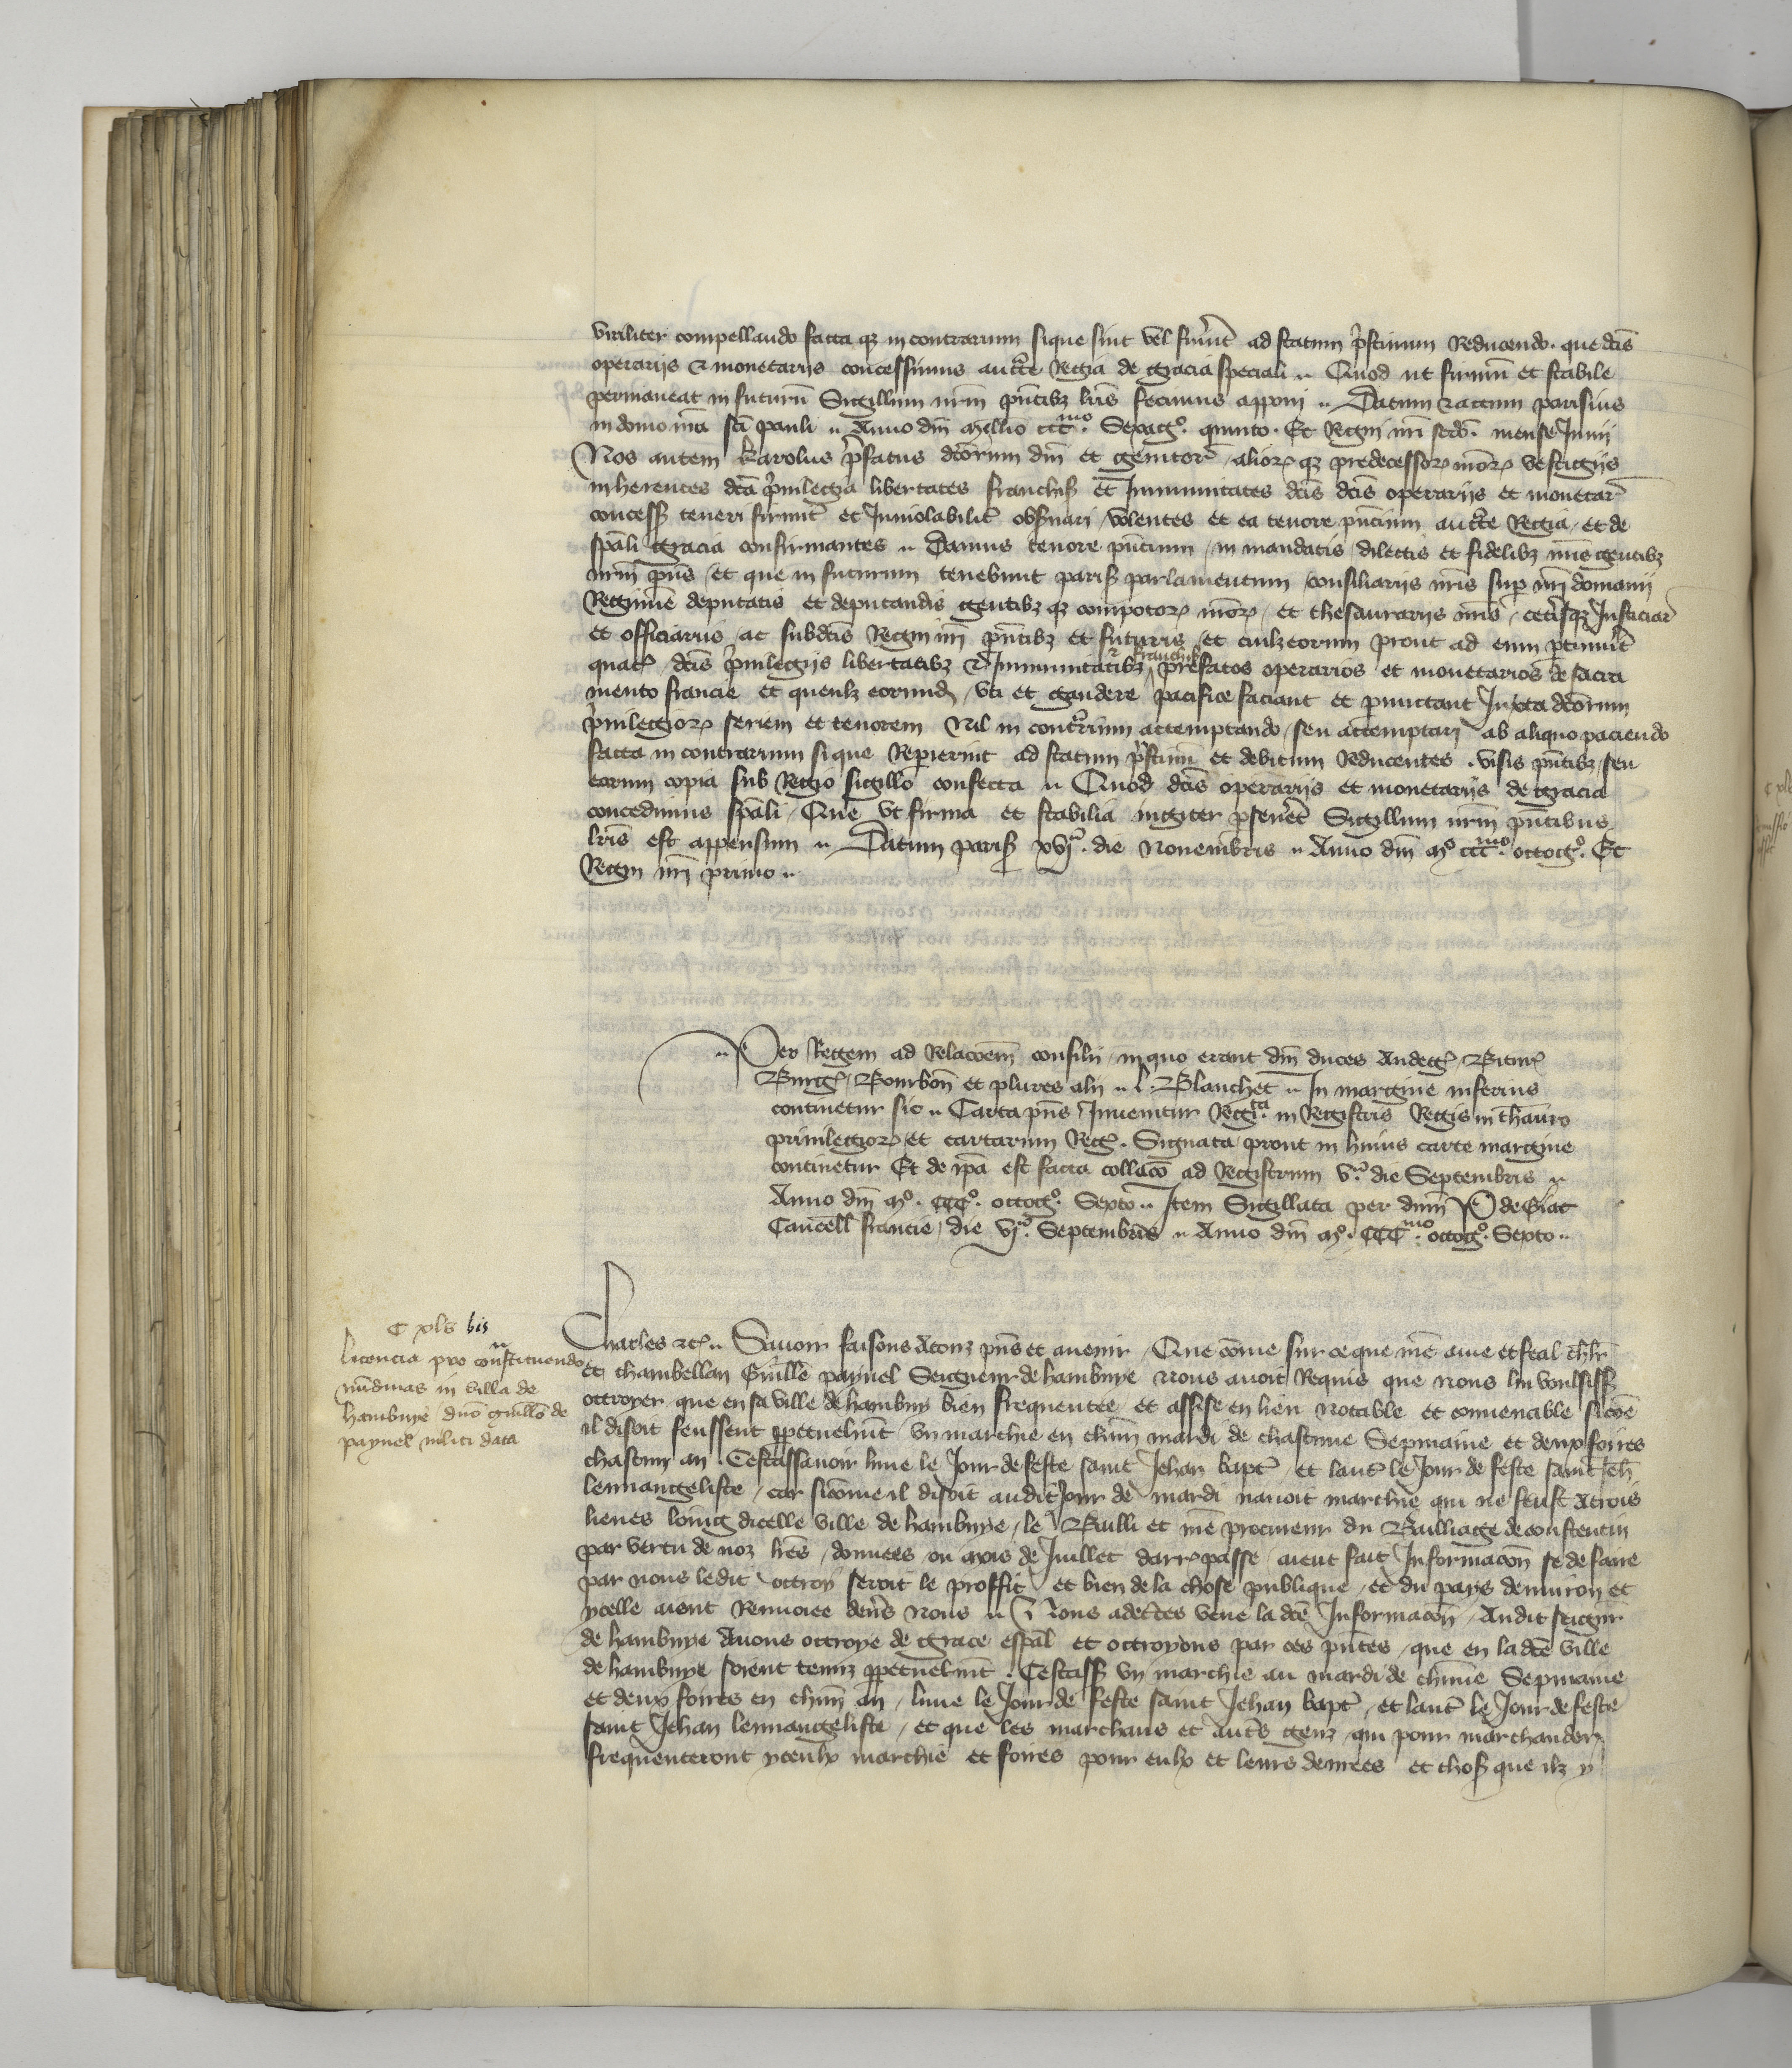 viriliter compellando facta qz in contrarium si que sint vel fuerĩt ad statum p̃stinum Reducendo. que dc̃is
operarijs & monetarijs concessimus auct̃te Regia de gracia speciali .. Quod ut firmũ et stabile
permaneat in futurũ Sigillum nr̃m pñtibz lr̃is fecimus apponi .. Datum & actum parisius
in domo nr̃a sc̃i pauli .. Anno dñi mill̃io ccc.mo Sexagº. quinto. Et Regni nr̃i sc̃do. mense Junij
Nos autem Karolus p̃fatus dc̃orum dñi et genitor̃ alior̃ qz predecessor̃ nr̃or̃ vestigijs
inherentes dc̃a p̃uilegia libertates franchiß et Immunitates dc̃is dc̃is operarijs et monetar̃
concess̃ teneri firmit̃ et Inuiolabilit̃ obßuari volentes et ea tenore pñcium auct̃te Regia et de
sp̃ali gracia confirmantes .. Damus tenore pñcium in mandatis dilectis et fidelibz nr̃is gentibz
nr̃m pñs et que in futurum tenebunt pariß parlamentum consiliarijs nr̃is sup̃ nr̃i domanij
Regimĩe deputatis et deputandis gentibz qz compotor̃ nr̃or̃ et thesaurarijs nr̃is ceterisqz Justiciar̃
et officiariis ac subdc̃is Regni nr̃i pñtibz et futuris et cuilz eorum prout ad eum ptinuit̃
quat̃ dc̃is p̃uilegijs libertatibz & Immunitatibz & franchiß prefatos operarios et monetarios de sacra
mento francie et quenlz eorumd̃ vti et gaudere pacifice faciant et pmittant Juxta dc̃orum
p̃uilegior̃ seriem et tenorem Nil in cont̃rium attemptando seu attemptari ab aliquo paciendo
facta in contrarium si que Repierint ad statum p̃stinũ et debitum Reducentes . visis pñtibz seu
earum copia sub Regio sigillo confecta .. Quod dc̃is operarijs et monetarijs de gracia
concedimus sp̃ali Que vt firma et stabilia iugiter pseuer̃et Sigillum nr̃m pñtibus
lr̃is est appensum .. Datum pariß xvj.ª die Nouembris .. Anno dñi mº ccc.mo octogº. Et
Regni nr̃i primo ..
.. Per Regem ad Relacoem̃ consilij in quo erant dñi duces Andeg̃ Bitur̃
Burg̃ Borbon̄ et plures alij .. L. Blanchet .. In margine inferius
continetur sic .. Carta pñs Inuenitur Regta. in Registris Regis in thaur̃o
priuilegior̃ et cartarum Reg̃. Signata prout in huius carte margine
continetur Et de ip̃a est facta collac̃o ad Registrum v.ª die Septembris ..
Anno dñi mº. CCCº. octogº. Sexto .. Item Sigillata per dnũ P de Giac
Cancell̃ francie die vj.ª Septembris .. Anno dñi mº. CCC.mo octogº. Sexto ..
C xlv bis
licencia pro constituendo
nũdinas in villa de
hambuye dño guill̃o de
paynel militi data
Charles &c̃ .. Sauoir faisons Atouz pñs et auenir Que cõme sur ce que nr̃e ame et feal ch̃lr̃
et chambellan Guill̃e paynel Seigneur de hambuye nous auoit Requis que nous lui voulsiß
octroyer que en sa ville de hambuy bien frequentee et assise en lieu notable et conuenable sicõe
il disoit feussent ppetuelmẽt vn marchie en chũn mardi de chascune Sepmaine et deux foires
chascun an Cestassauoir lune le Jour de feste saint Jehan bapt̃ et laut̃ le Jour de feste saint Jeh̃
leuuangeliste car sicõme il disoit audit Jour de mardi nauoit marchie qui ne feust Atrois
lieues loing dicelle ville de hambuye le Bailli et nr̃e procureur du Bailliage de constentin
par vertu de noz lr̃es donnees ou mois de Juillet darr̃ passe aient fait Informacõn se de faire
par nous ledit octroy seroit le proffit et bien de la chose publique et du pays denuiron et
ycelle aient Renuoiee deuers nous .. Nous adect̃es veue la dc̃e Informacõn Audit seignr̃
de hambuye Auons octroye de grace esp̃al et octroyons par ces pñtes que en la dc̃e ville
de hambuye soient tenuz ppetuelmẽt . Cestaß vn marchie au mardi de chũne Sepmaine
et deux foires en chũn an lune le Jour de feste saint Jehan bapt̃ et laut̃ le Jour de feste
saint Jehan leuuangeliste et que les marchans et aut̃s genz qui pour marchander
frequenteront yceulx marchie et foires pour eulx et leurs denrees et choß que ilz y